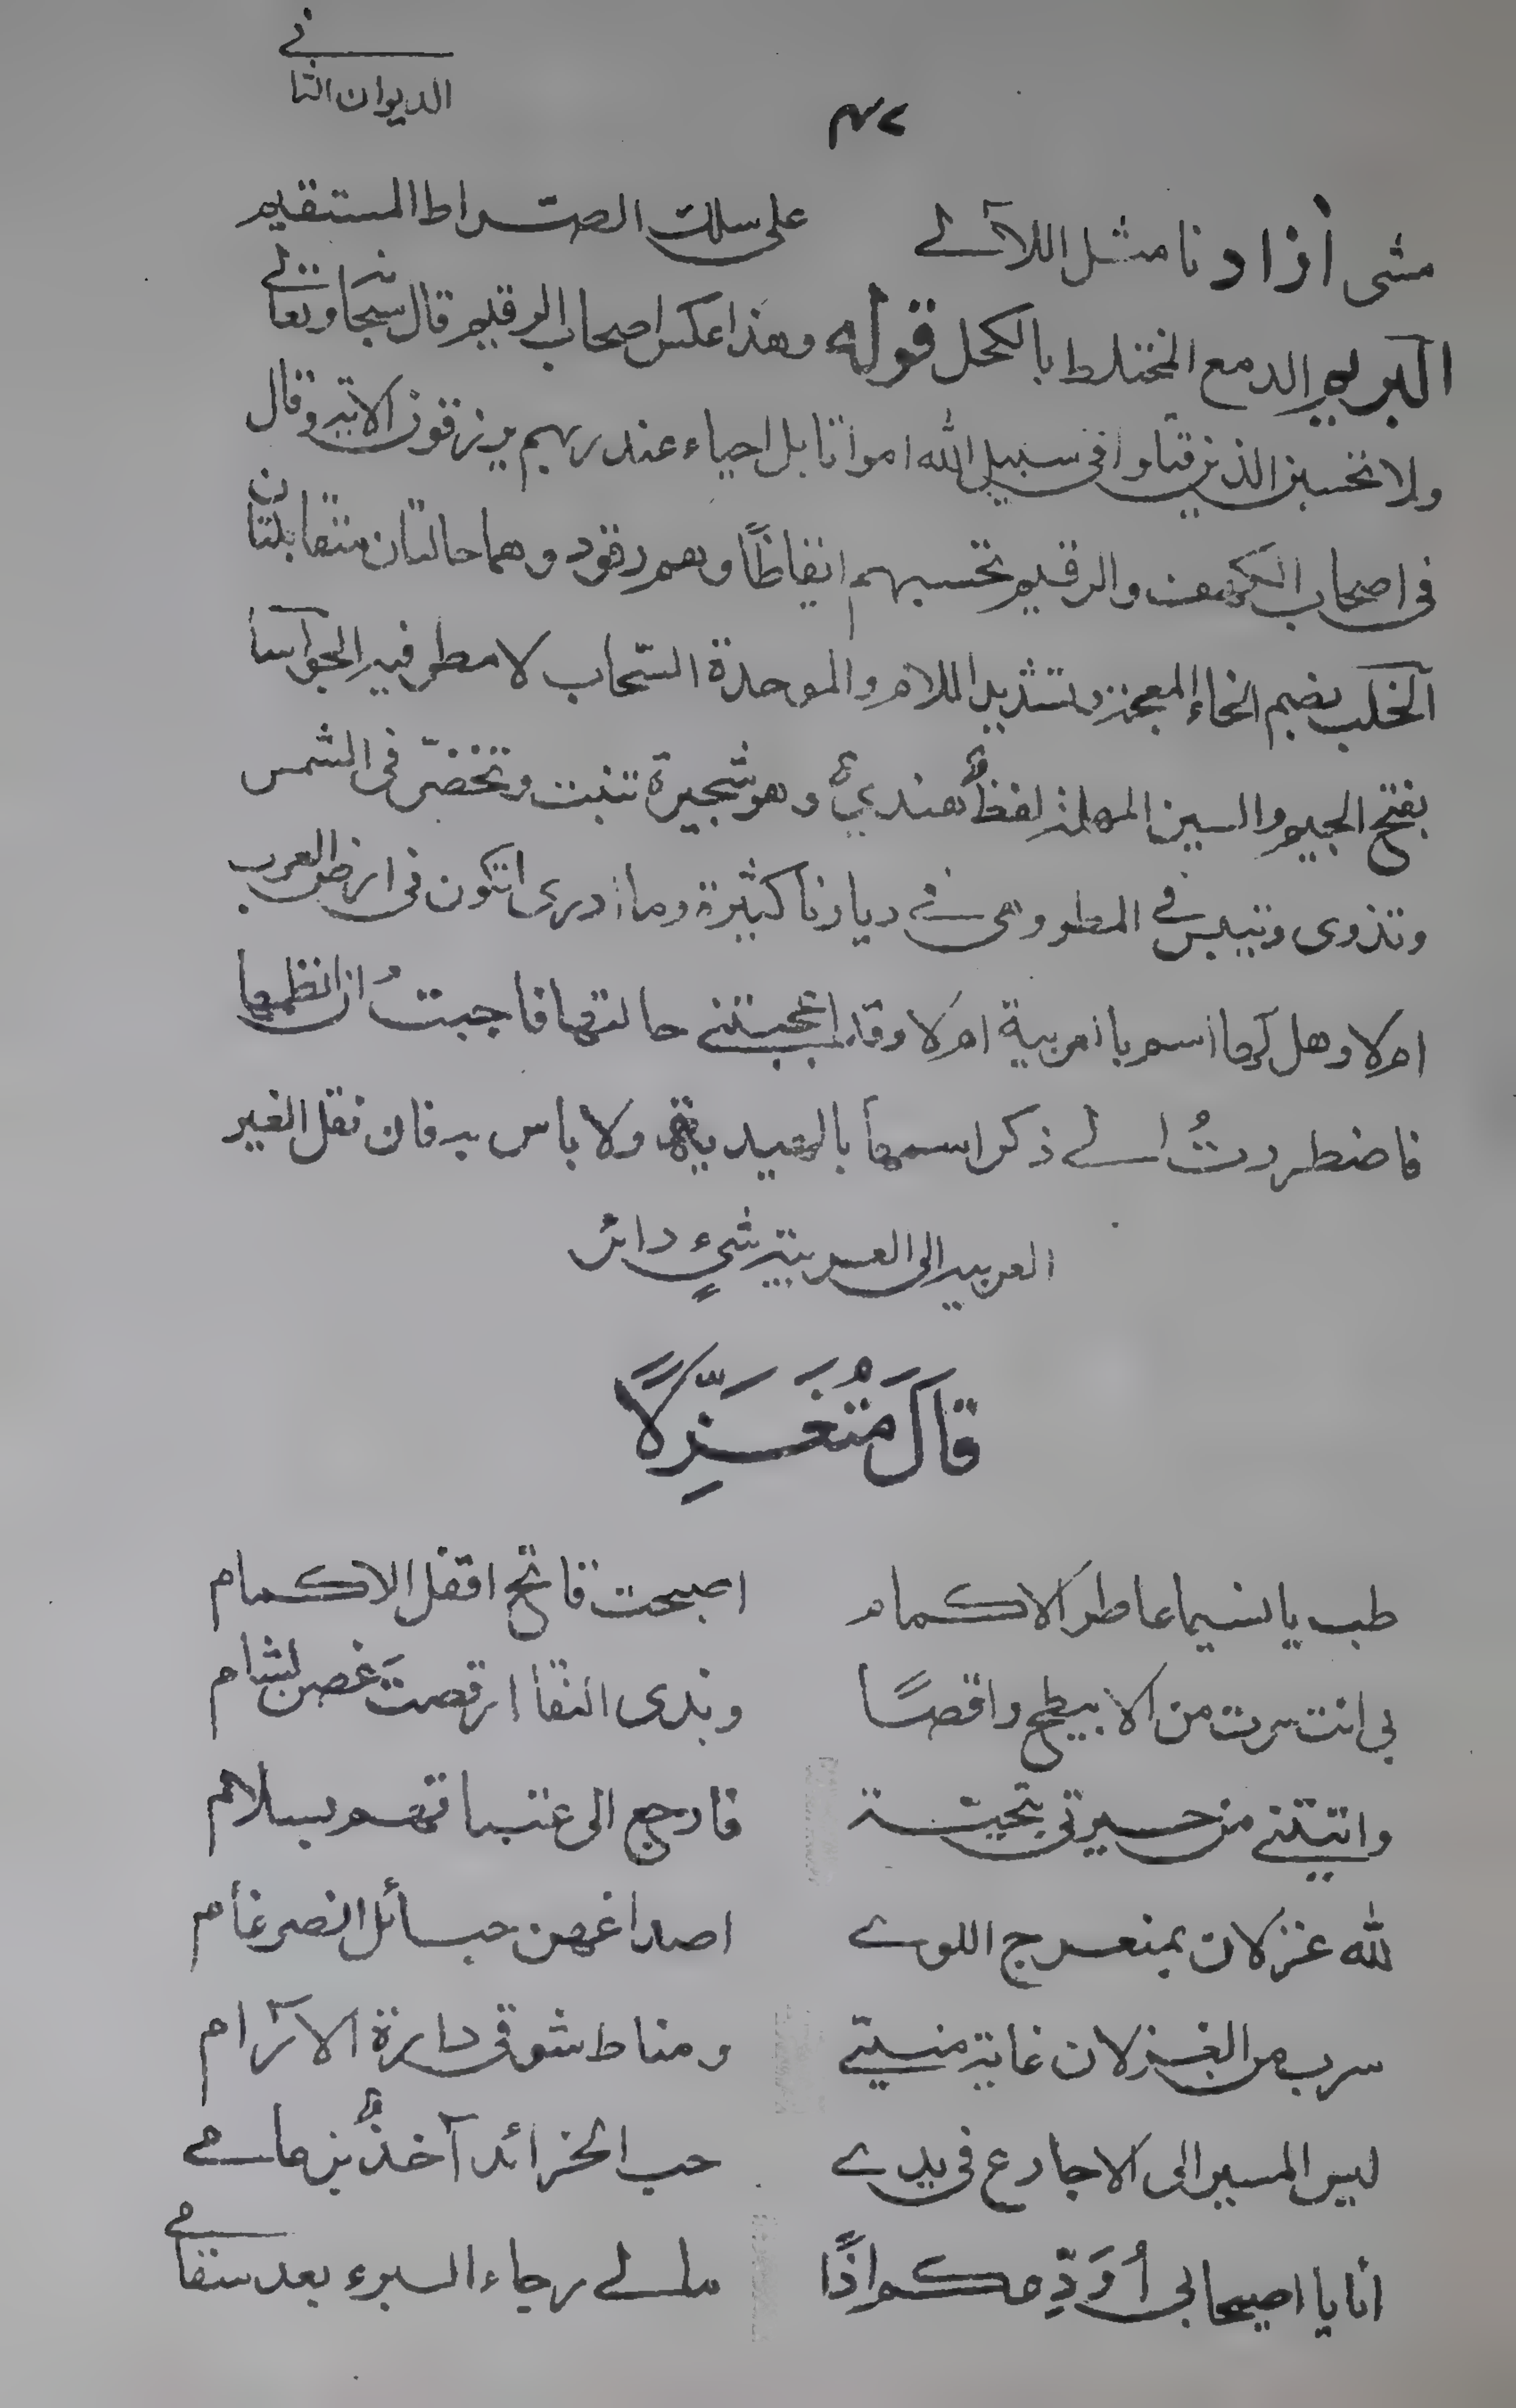 الديوان الثاني
مشى آزادنا مثل اللآلے على سلك الصراط المستقيم
البريم الدمع المختلط بالكحل قوله وهذا عكس اصحاب الرقيم قال سبحانه وتعالى
ولا تحسبن الذين قتلوا في سبيل الله امواتا بل احياء عند ربهم يرزقون الاية وقال
في اصحاب الكهف والرقيم تحسبهم ايقاظًا وهم رقود وهما حالتان متقابلتان
الخلب بضم الخاء المعجمة وتشديد اللام والموحدة السحاب لا مطر فيه الجواسا
بفتح الجيم والسين المهملة لفظٌ هنديٌ وهو شجيرة تنبت وتخضرّ في الشمس
وتذوى وتيبس في المطر وهي في ديارنا كثيرة وما ادرى اتكون في ارض العرب
ام لا وهل لها اسم بالعربية ام لا وقد اعجبتنے حالتها فاجبتُ ان انظمها
فاضطررتُ الے ذكر اسمها بالهندية ولا باس به فان نقل الغير
العربية الى العربية شيءٍ دائر
قَالَ مُتَغَزِّلًا
طب يا نسيما عاطر الاكمام اصبحت فاتح اقفل الاكمام
بي انت سرت من الابيطح راقصًا وبدى النقا ارقصتَ غصن بشام
واتيتنے من جيرتي بتحية فارجع الى عتباتهم بسلام
لله غزلان بمنعرج اللوے اصداغهن حبائل الضرغام
سرب من الغزلان غاية منيتے ومناط شوقي دارة الآرام
ليس المسير الى الاجارع في يدے حب الخرائد آخذٌ بزمامے
أنا يا اصيحابي أُوَدِّعكم اذًا مالے رجاء البرء بعد سقامے